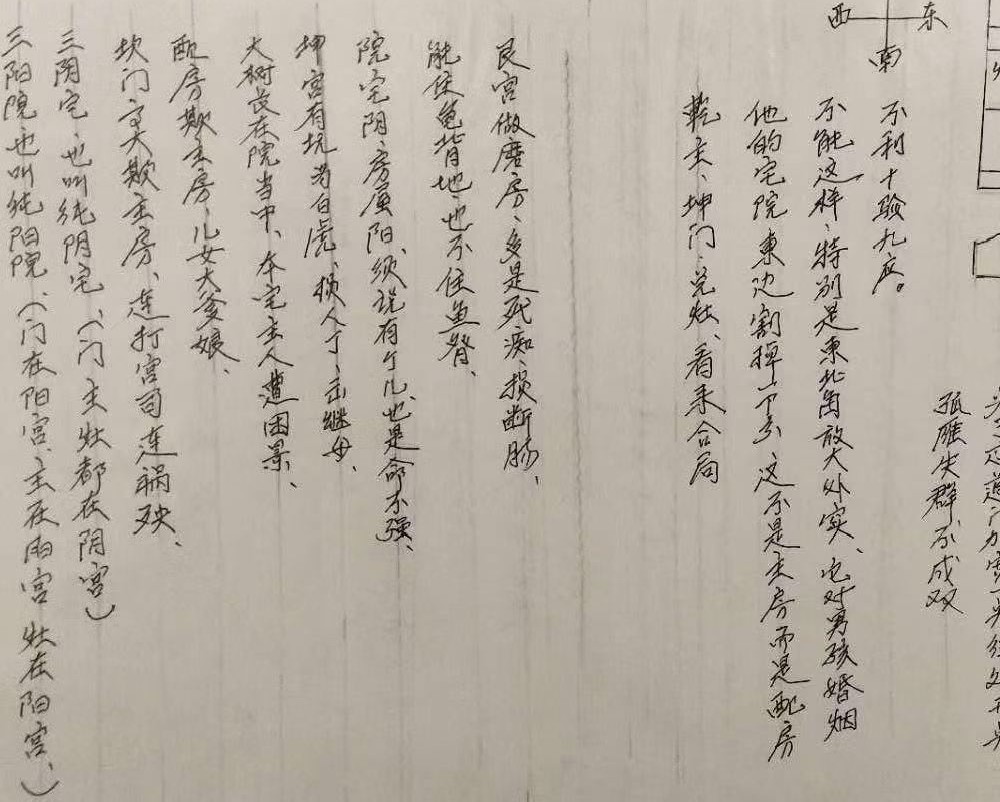 西 东
南
孤雁失群不成双
不利十验九应。
不能这样、特别是東北角放大外实、它对男孩婚烟
他的宅院東边割掉了 这不是主房而是配房
乾主、坤门、兑灶、看来合局
艮宫做磨房、多是死痴、损断肠、
能住龟背地、也不住鱼脊、
院宅阴、房属阳、须说有个儿、也是命不强、
坤宫有坑为白虎、损人丁、主继母、
大树长在院当中、本宅主人遭困景、
配房欺主房、儿女大爹娘、
坎门高大欺主房、连打官司连祸殃、
三阴宅也叫纯阴宅、(门主灶都在阴宫)
三阳院也叫纯阳院、(门在阳宫、主在阳宫 灶在阳宫、)